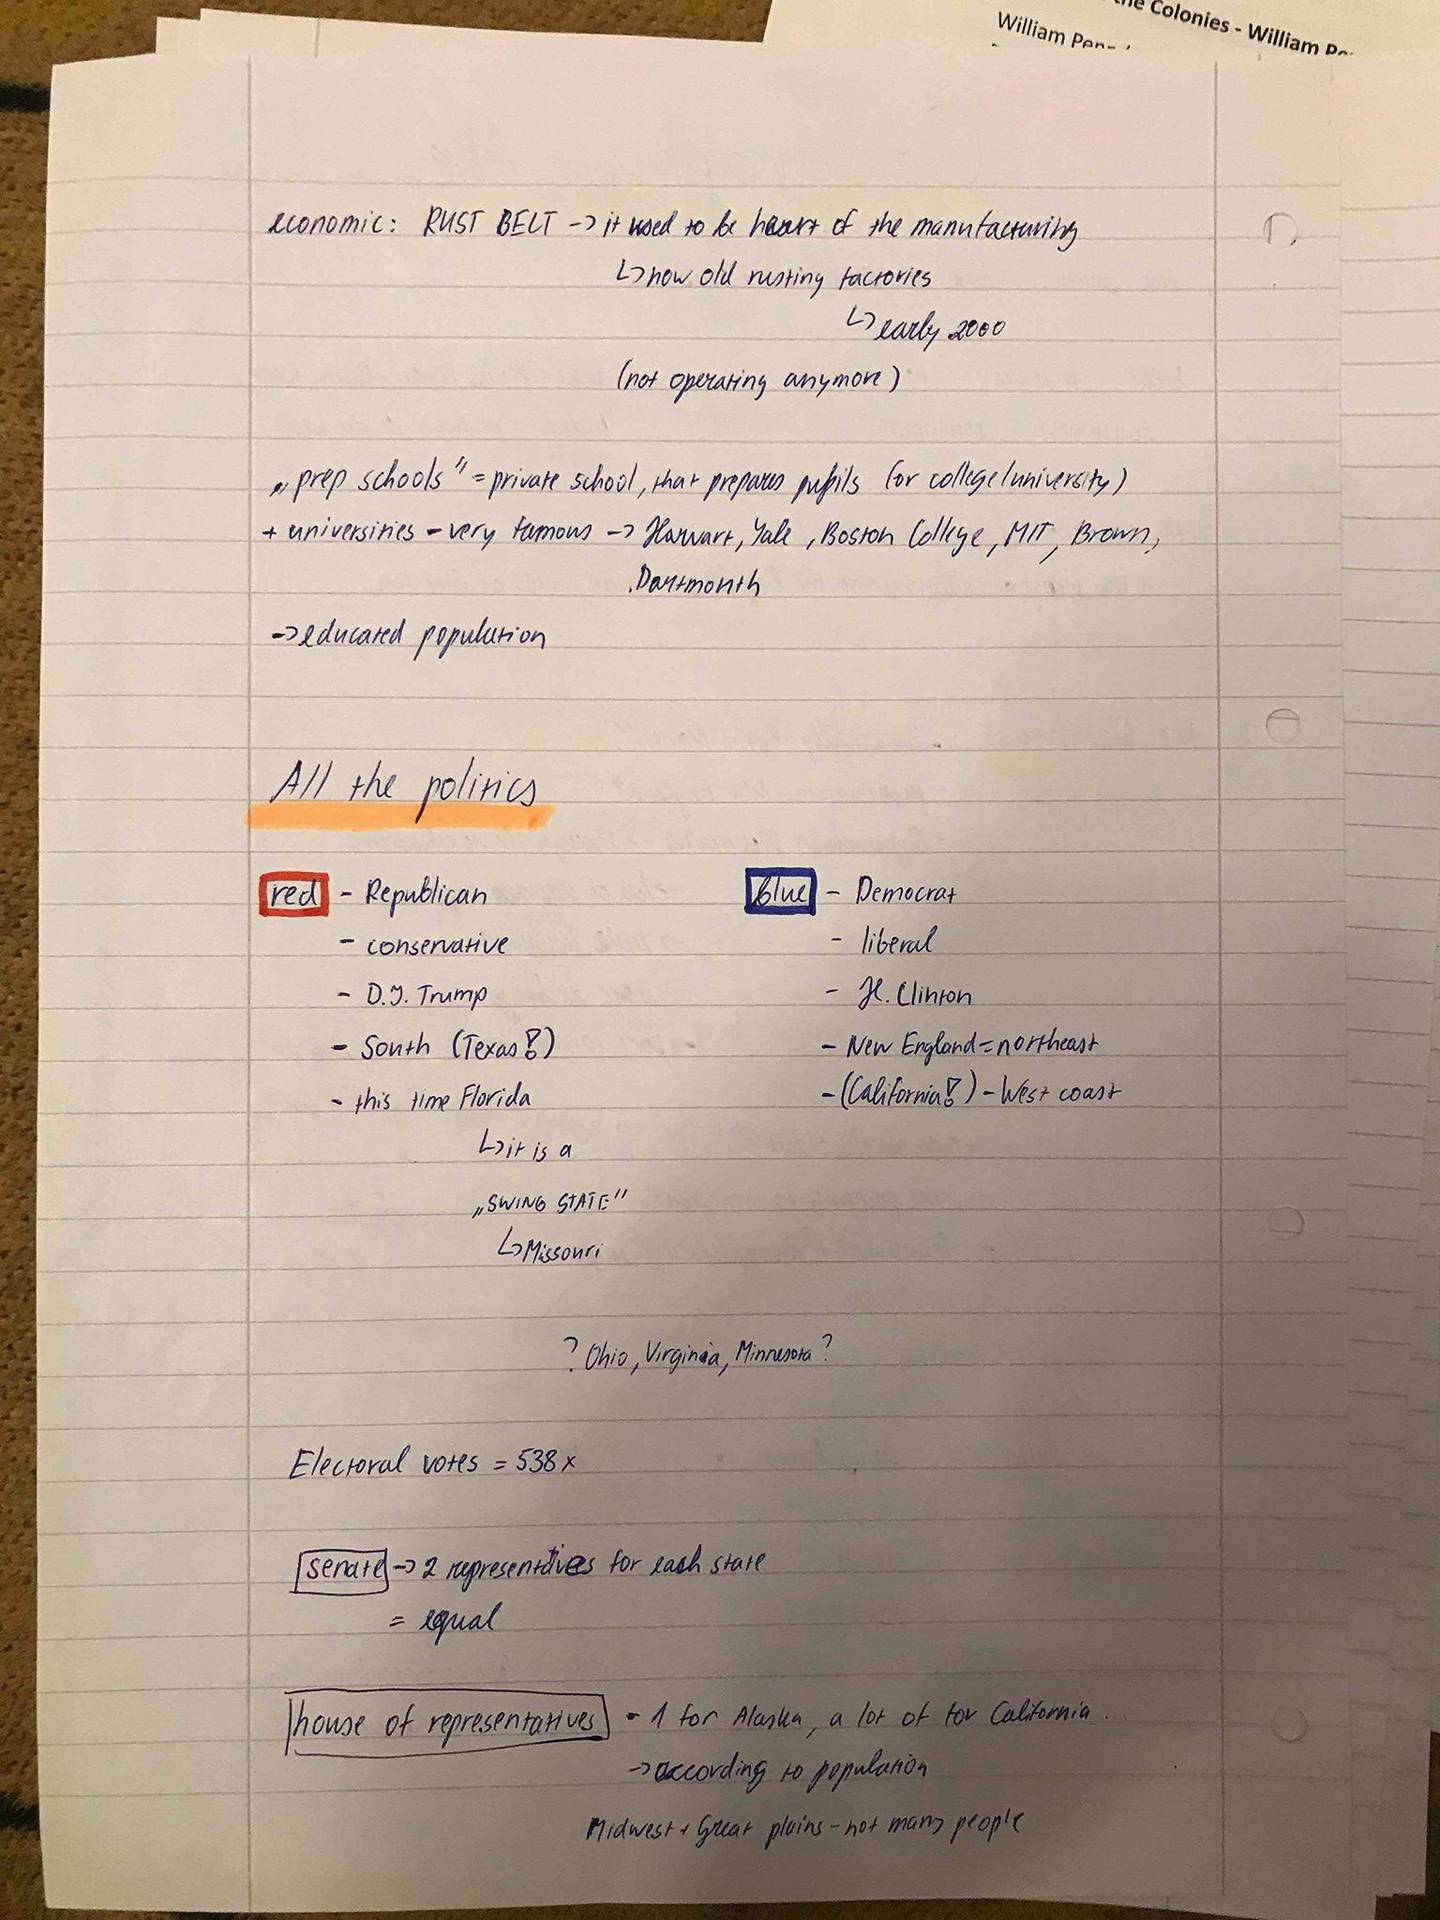 the Colonies - William Pe
William Penn
economic: RUST BELT -> it used to be heart of the manufacturing
↳ now old rusting factories
↳ early 2000
(not operating anymore)
„prep schools" = private school, that prepares pupils (for college/university)
+ universities - very famous -> Harwart, Yale, Boston College, MIT, Brown,
Dartmonth
-> educated population
All the politics
red - Republican
- conservative
- D.J. Trump
- South (Texas!)
- this time Florida
↳ it is a
„SWING STATE"
↳ Missouri
blue - Democrat
- liberal
- H. Clinton
- New England = northeast
- (California!) - West coast
? Ohio, Virginia, Minnesota ?
Electoral votes = 538x
senate -> 2 representatives for each state
= equal
house of representatives - 1 for Alaska, a lot of for California ...
-> according to population
Midwest + Great plains - not many people